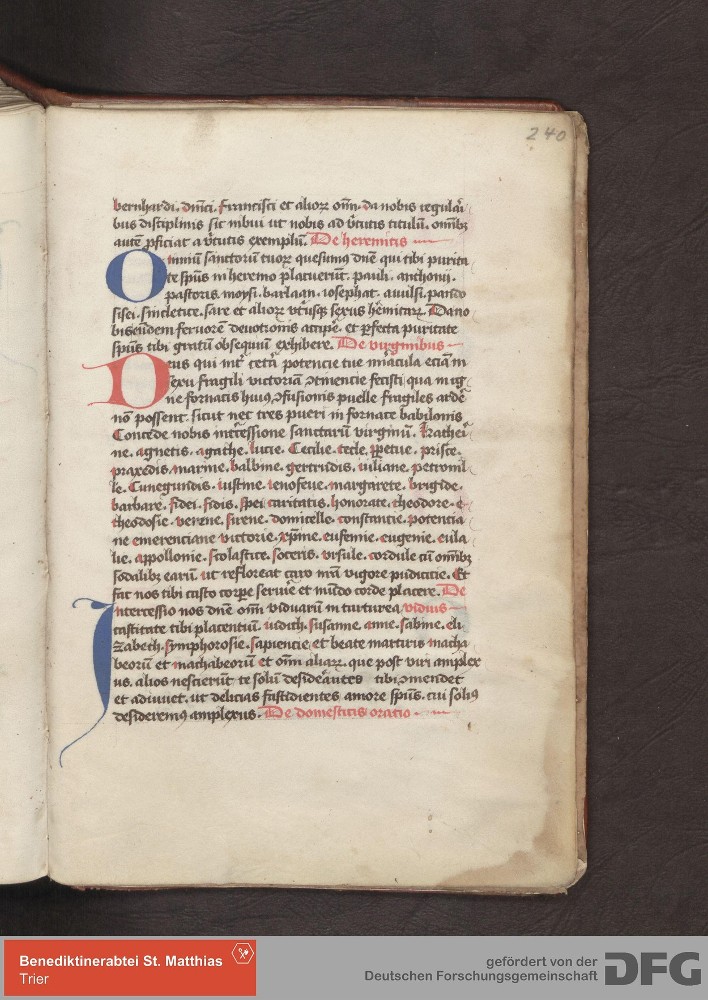 240
bernhardi. dm̄ci. francisci et alioꝝ om̄. da nobis regulāi
bus disciplinis sic inbui ut nobis ad v̓tutis titulū. omībꝫ
autē ꝓficiat a v̓tutis exemplū. De heremitis
Omniū sanctorū tuoꝝ quesumꝰ dn̄e qui tibi purita
te spūs in heremo placuerūt. pauli. anthonij.
pastoris. moysi. barlaan. iosephat. pando
sisei. sincletice. sare et alioꝝ vtriusqꝫ sexus h̓emitaꝝ. Da no
bis eiusdem feruorē deuotionis accipe. et ꝑfecta puritate
spūs tibi gratū obsequiū exhibere. De virginibus
Deus qui int̓ cet̓a potencie tue mīacula eciam in
sexu fragili victoriā ↄtinencie fecisti qua in ig
ne fornacis huiꝰ ↄfusionis puelle fragiles ardē
nō possent. sicut nec tres pueri in fornace babilonis
Concede nobis int̓cessione sanctarū virginū. kathei
ne. agnetis. agathe. lucie. Cecilie. tecle. ꝑpetue. prisce.
praxedis. marine. balbine. gertrudis. iuliane. petronil
le. Cunegundis. iustine. ienofeue. margarete. brigide.
barbare. fidei. fidis. spei caritatis. honorate. theodore.
theodosie. verene. sirene. domicelle. constancie. potencia
ne emerenciane victorie. xp̄ine. eufemie. eugenie. eula
lie. appollonie. scolastice. soteris. vrsule. cordule cū omībꝫ
sodalibꝫ earū. ut refloreat caro nr̄a vigore pudicicie. Et
fac nos tibi casto corꝑe seruīe et mūdo corde placere. De
Intercessio nos dn̄e om̄ viduarū in turturea viduis
castitate tibi placentiū. iudith. susanne. anne. sabine. eli
zabeth. symphorosie. sapiencie. et beate matris macha
beorū et machabeorū et om̄ aliaꝝ. que post viri amplex
us. alios nescierūt te solū desiderantes tibi ↄmendet
et adiuuet. ut delicias fastidientes amore spūs. cui soliꝰ
desideremꝰ amplexus. De domesticis oratio.
Benediktinerabtei St. Matthias
Trier
gefördert von der
Deutschen Forschungsgemeinschaft
DFG